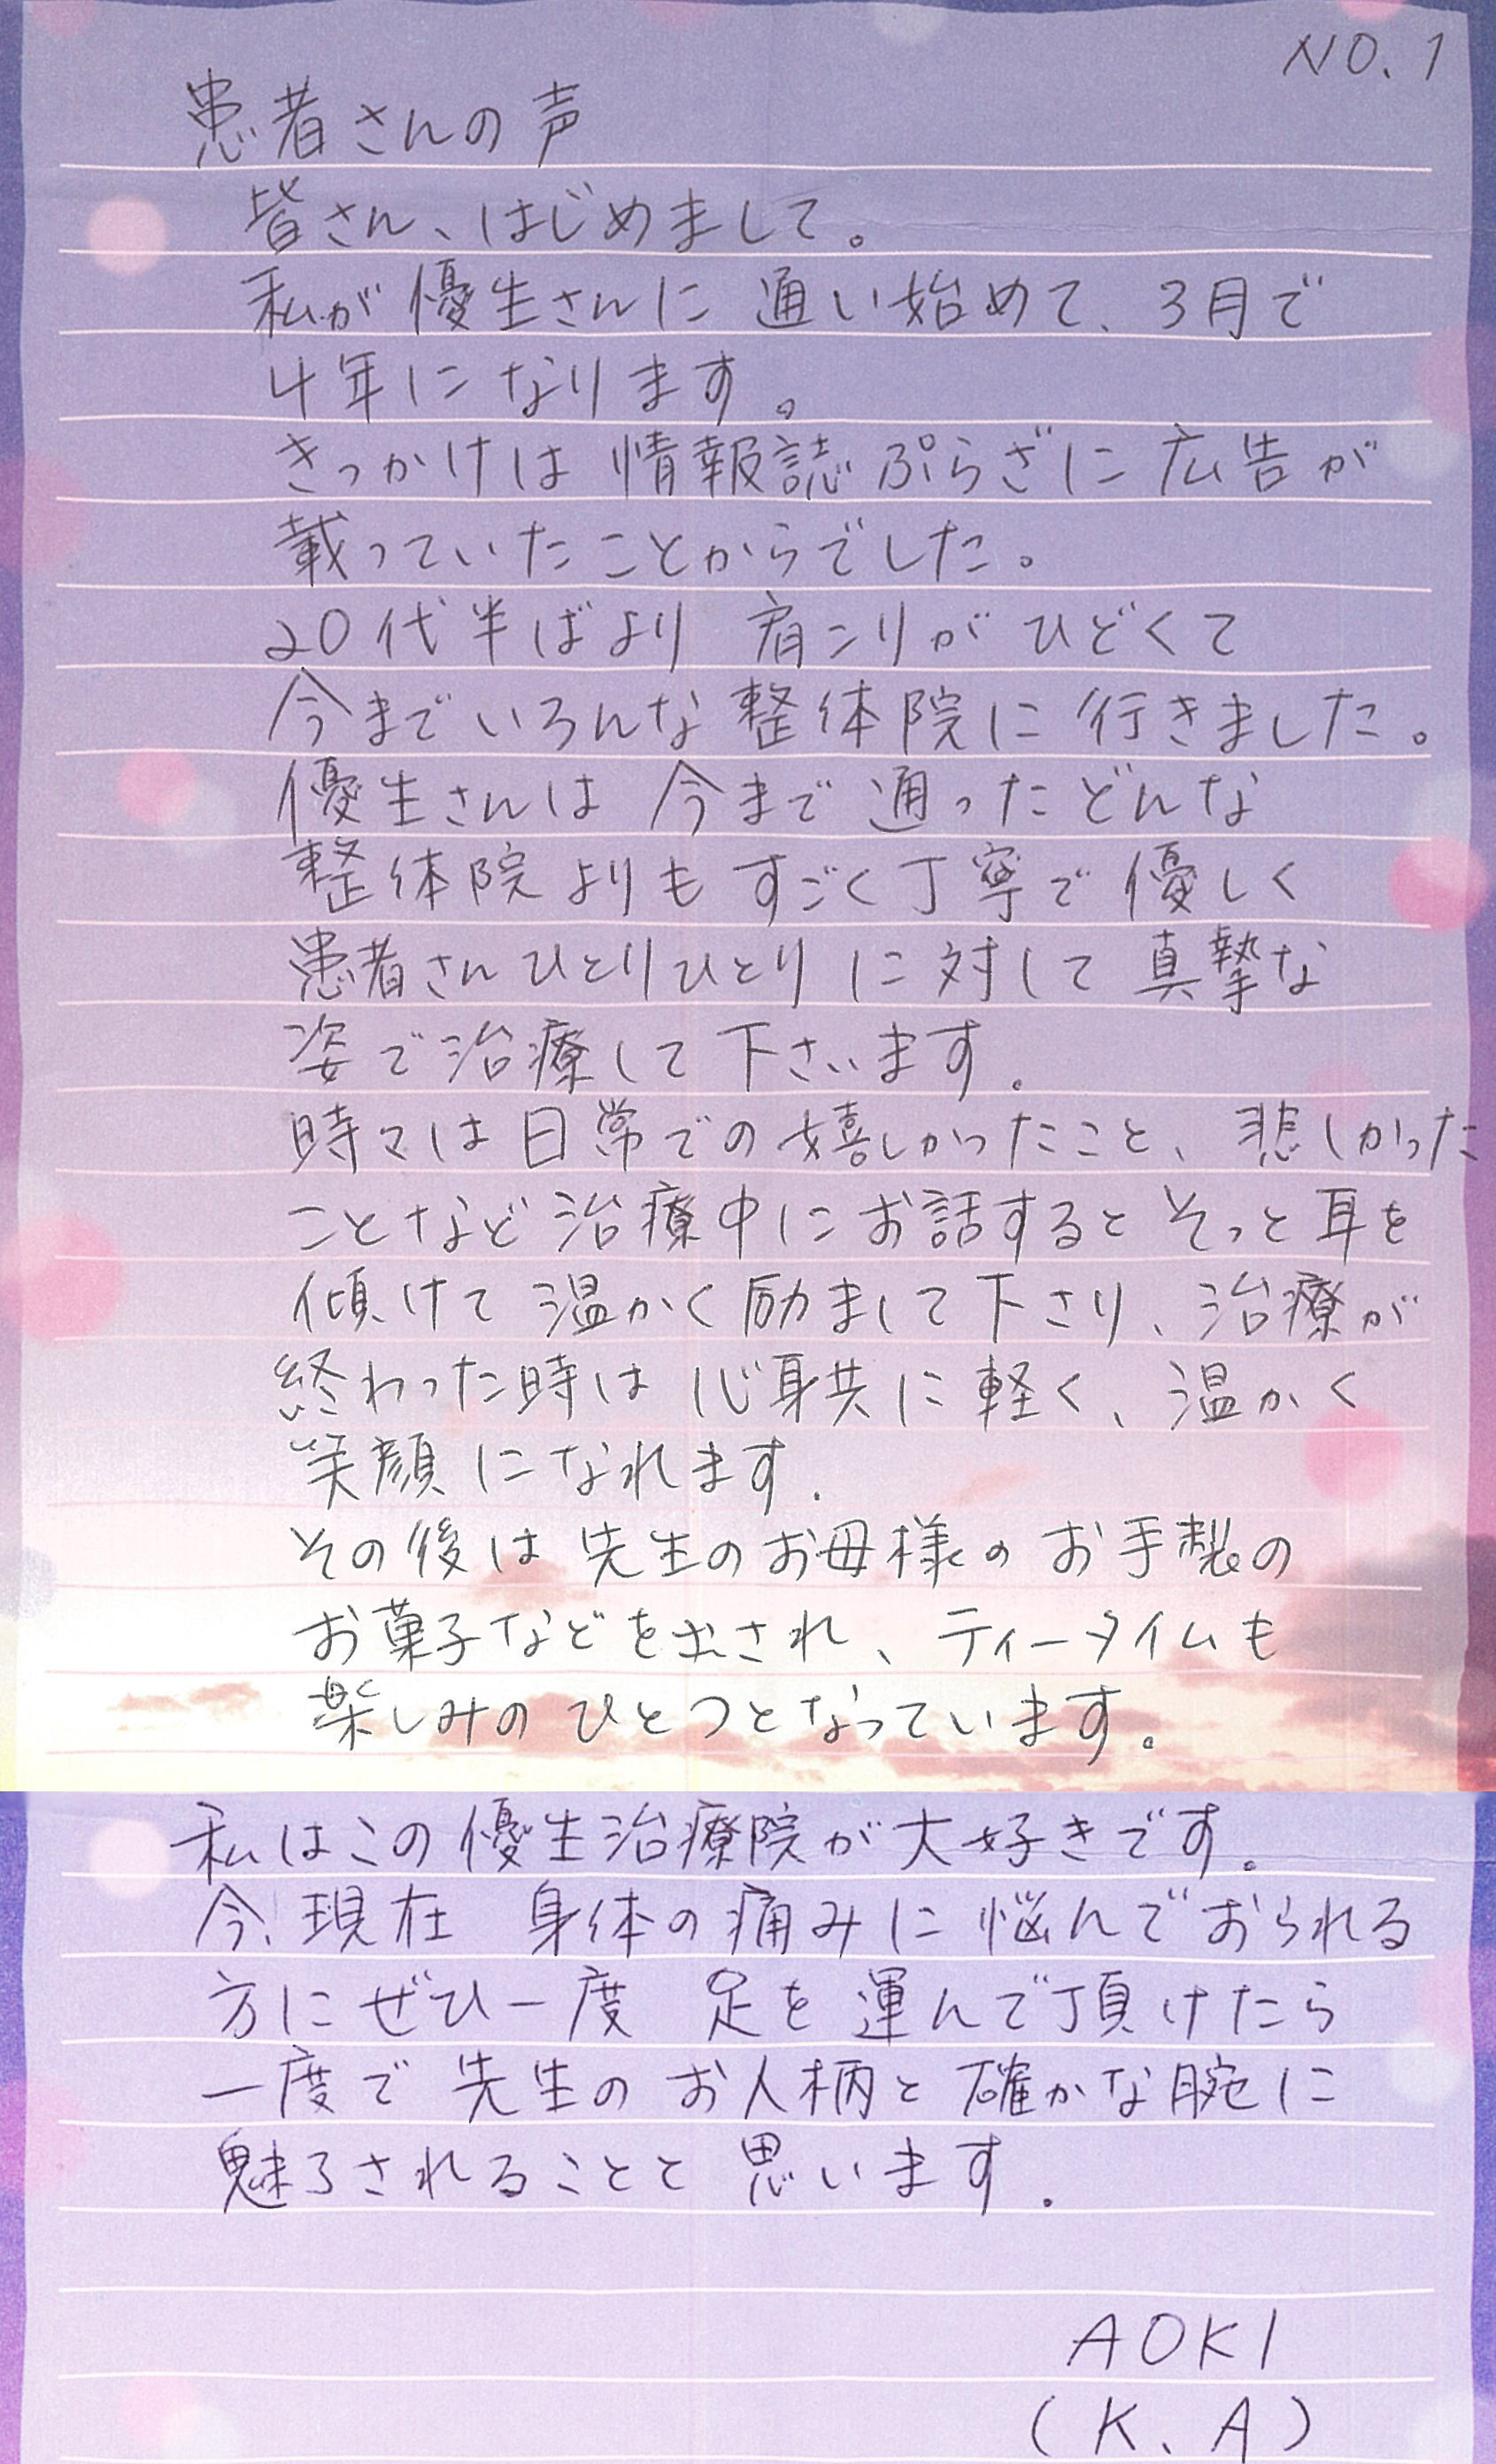 NO.1
患者さんの声
皆さん、はじめまして。
私が優生さんに通い始めて、3月で
4年になります。
きっかけは情報誌ぷらざに広告が
載っていたことからでした。
20代半ばより肩こりがひどくて
今までいろんな整体院に行きました。
優生さんは今まで通ったどんな
整体院よりもすごく丁寧で優しく
患者さんひとりひとりに対して真摯な
姿で治療して下さいます.
時々は日常での嬉しかったこと、悲しかった
ことなど治療中にお話するとそっと耳を
傾けて温かく励まして下さり、治療が
終わった時は心身共に軽く、温かく
笑顔になれます.
その後は先生のお母様のお手製の
お菓子などを出され、ティータイムも
楽しみのひとつとなっています。
私はこの優生治療院が大好きです。
今、現在 身体の痛みに悩んでおられる
方にぜひ一度 足を運んで頂けたら
一度で先生のお人柄と確かな腕に
魅了されることと思います.
AOKI
(K.A)